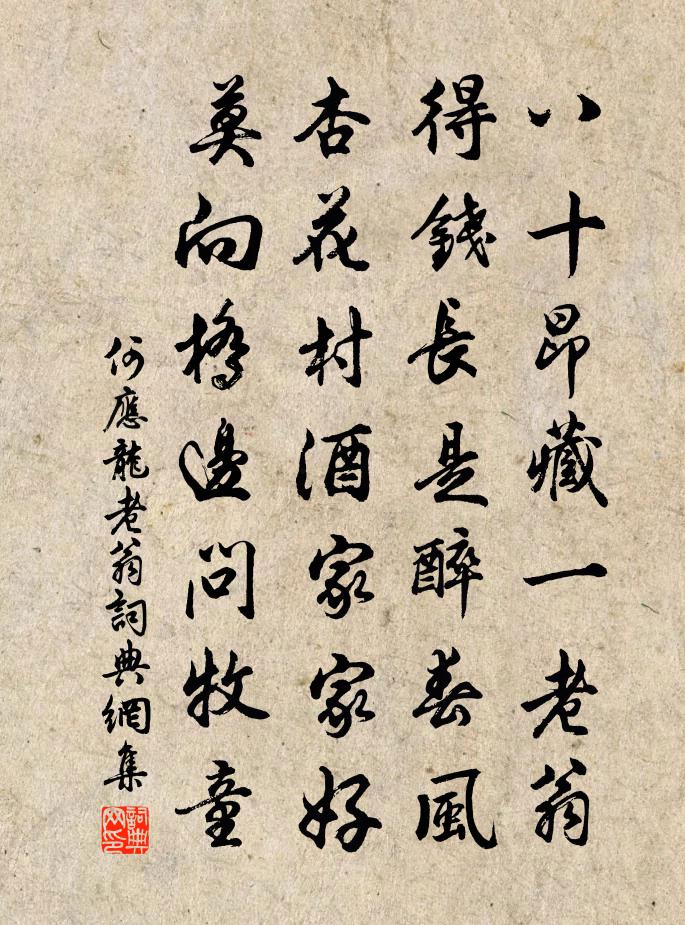 八十昂藏一老翁
得錢長是醉春風
杏花村酒家家好
莫向橋邊問牧童
何應龍老翁詞典網集
詞典網印